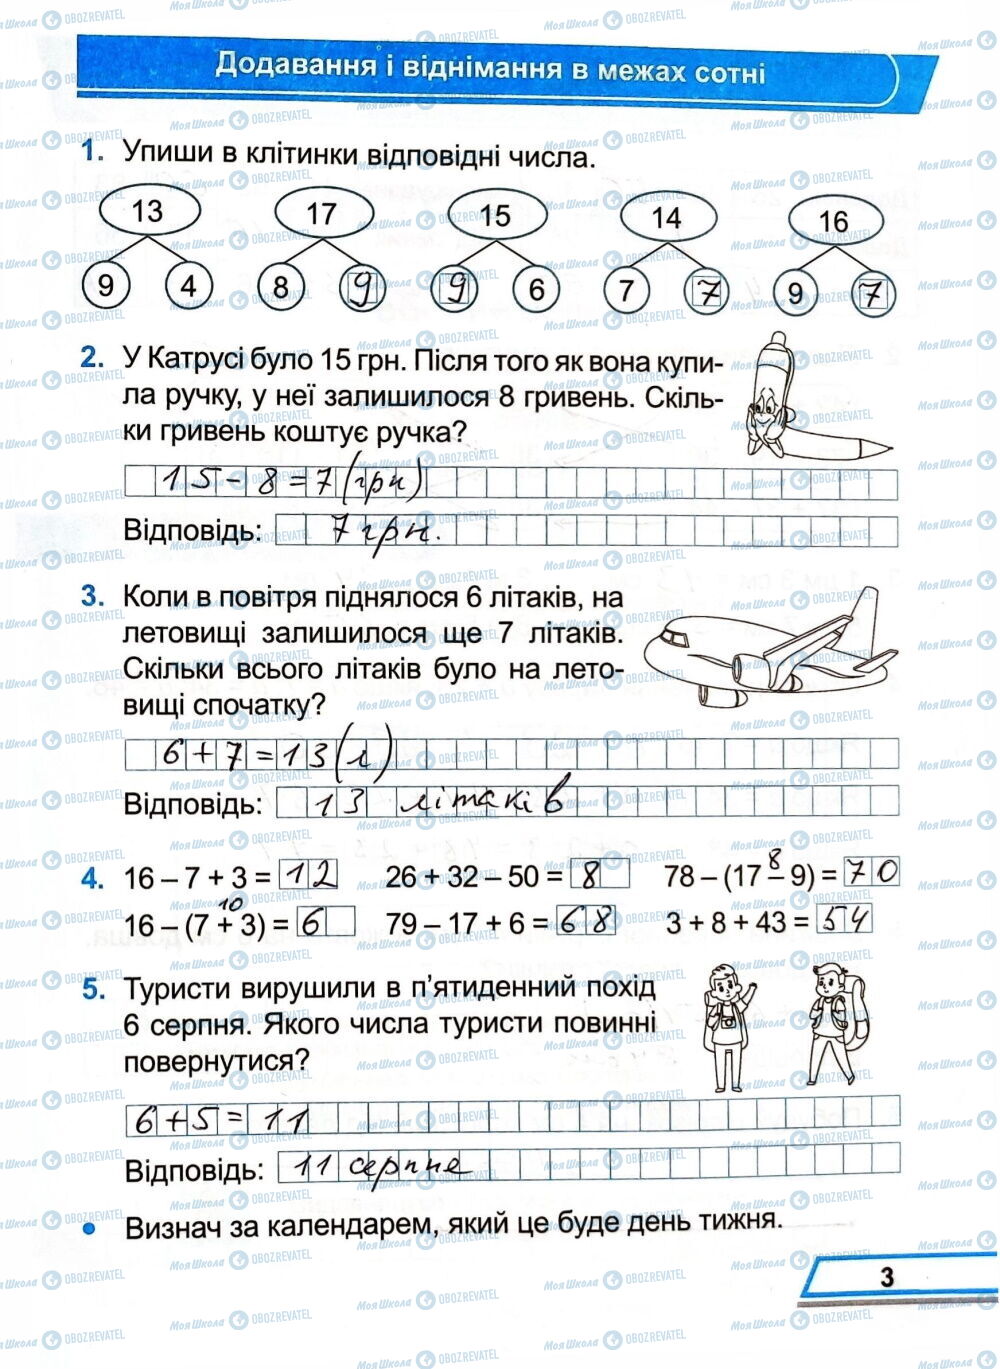 Додавання і віднімання в межах сотні
1. Упиши в клітинки відповідні числа.
13 17 15 14 16
9 4 8 9 9 6 7 7 9 7
2. У Катрусі було 15 грн. Після того як вона купи-
ла ручку, у неї залишилося 8 гривень. Скіль-
ки гривень коштує ручка?
15 - 8 = 7 (грн)
Відповідь: 7 грн.
3. Коли в повітря піднялося 6 літаків, на
летовищі залишилося ще 7 літаків.
Скільки всього літаків було на лето-
вищі спочатку?
6 + 7 = 13 (л)
Відповідь: 13 літаків
8
4. 16 – 7 + 3 = 12 26 + 32 – 50 = 8 78 – (17 – 9) = 70
10
16 – (7 + 3) = 6 79 – 17 + 6 = 68 3 + 8 + 43 = 54
5. Туристи вирушили в п'ятиденний похід
6 серпня. Якого числа туристи повинні
повернутися?
6 + 5 = 11
Відповідь: 11 серпня
• Визнач за календарем, який це буде день тижня.
3
МояШкола OBOZREVATEL